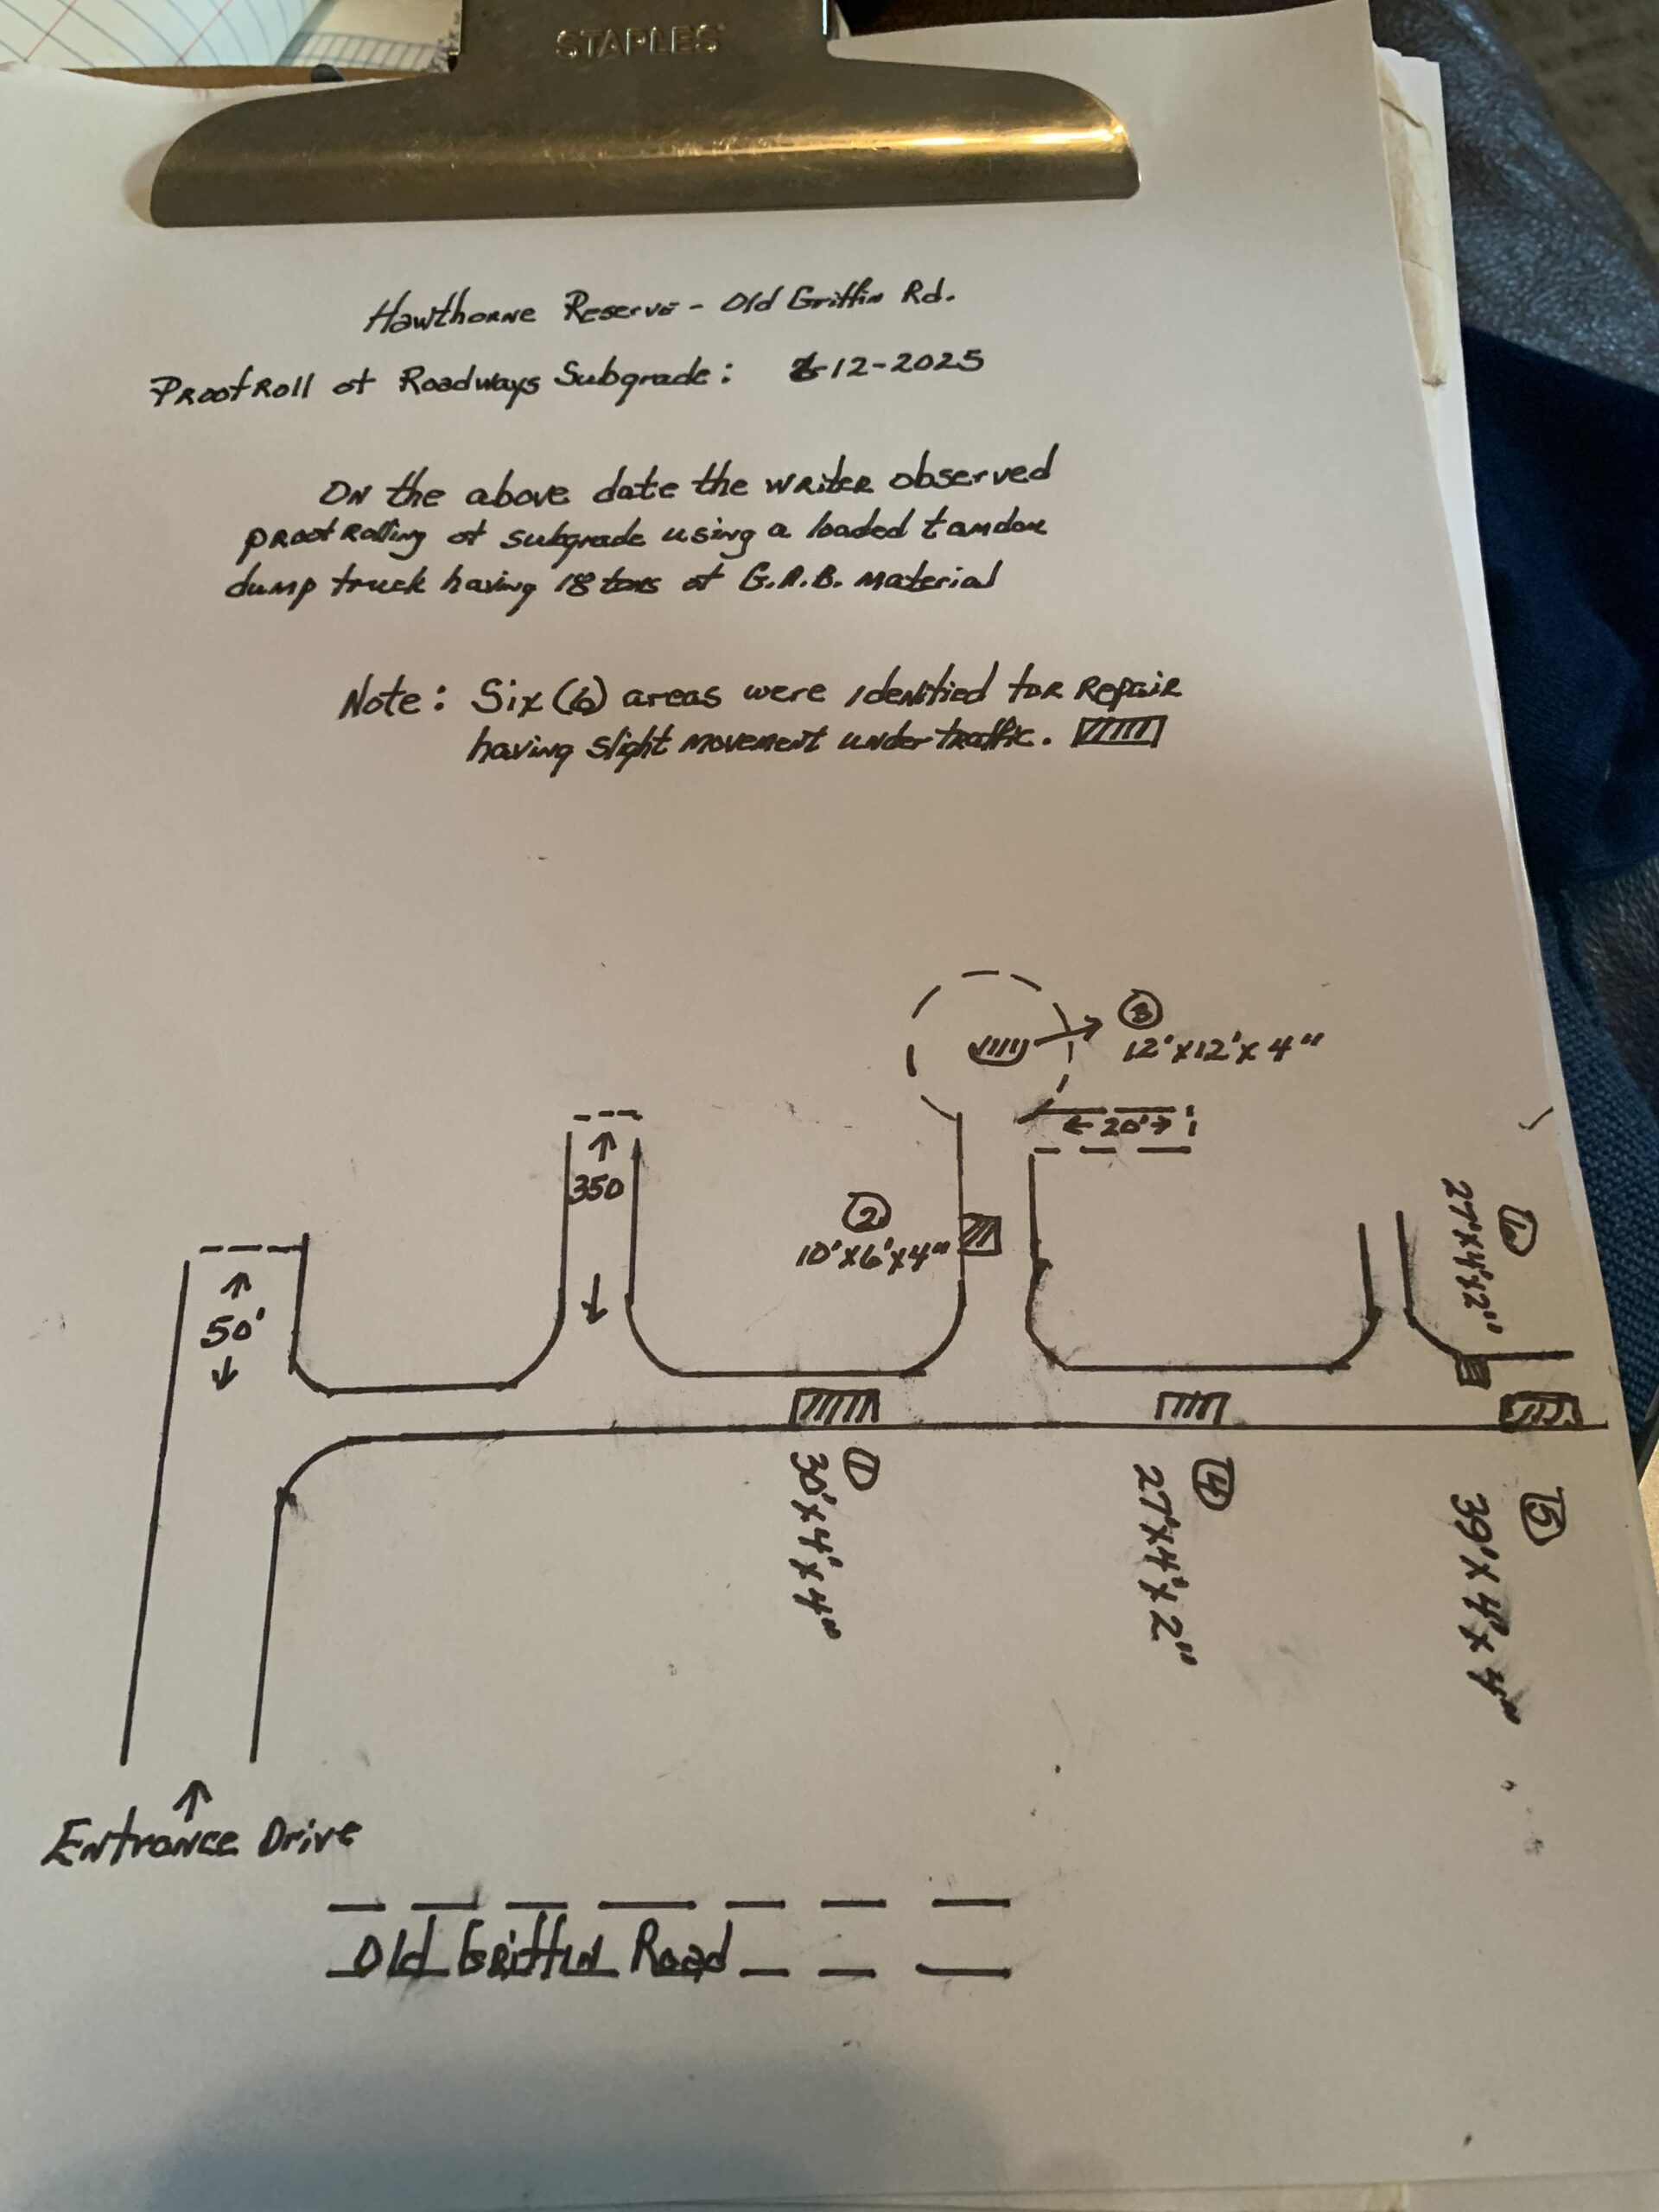 STAPLES
Hawthorne Reserve - Old Griffin Rd.
Proof Roll of Roadways Subgrade: -12-2025
On the above date the writer observed
proof rolling of subgrade using a loaded tandem
dump truck having 18 tons of G.A.B. material
Note: Six (6) areas were identified for repair
having slight movement under traffic.
3
12'x12'x4"
←20'→
↑
350
↓
2
10'x6'x4"
6
27'x4'x2"
↑
50'
↓
1
30'x4'x4"
4
27'x4'x2"
5
39'x4'x4"
↑
Entrance Drive
Old Griffin Road